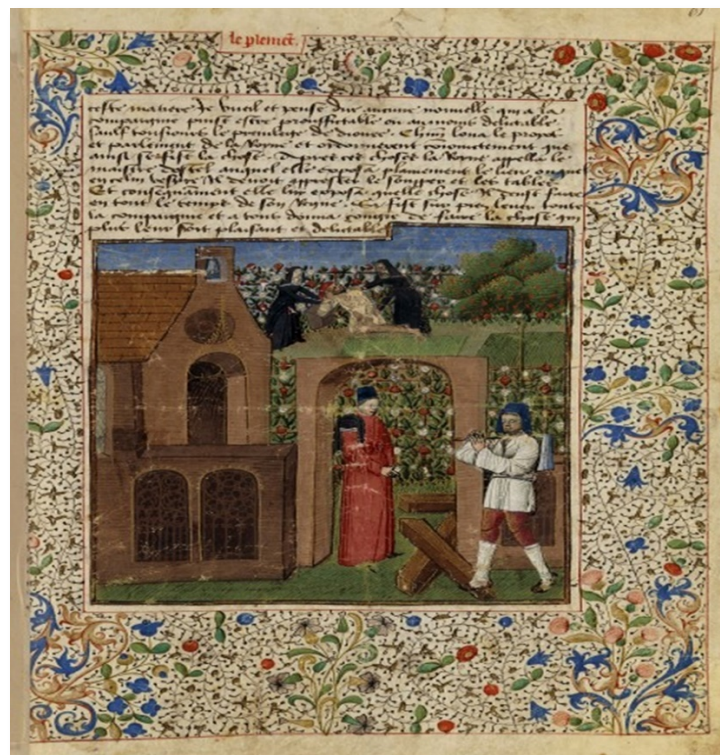 le premier.
ceste matiere Je vueil et pense dire aucune nouvelle qui a la
compaignie puist estre prouffitable ou au moins delitable
saulf tousiours le preuilege de dionee. Chun loua le propos
et parlement de la Royne et ordonnerent conionctement que
ainsi se fist la chose. Apres ces choses la Royne appella le
maistre dostel auquel elle exposa plainement le lieu ouquel
en celui vespre Il devoit apprester le soupper et les tables
Et consequanment elle luy exposa quelle chose Il deust faire
en tout le temps de son Regne. et la fist sur piez leuer toute
la compaignie et a tout donna congie de faire la chose qui
plus leur soit plaisant et delitable